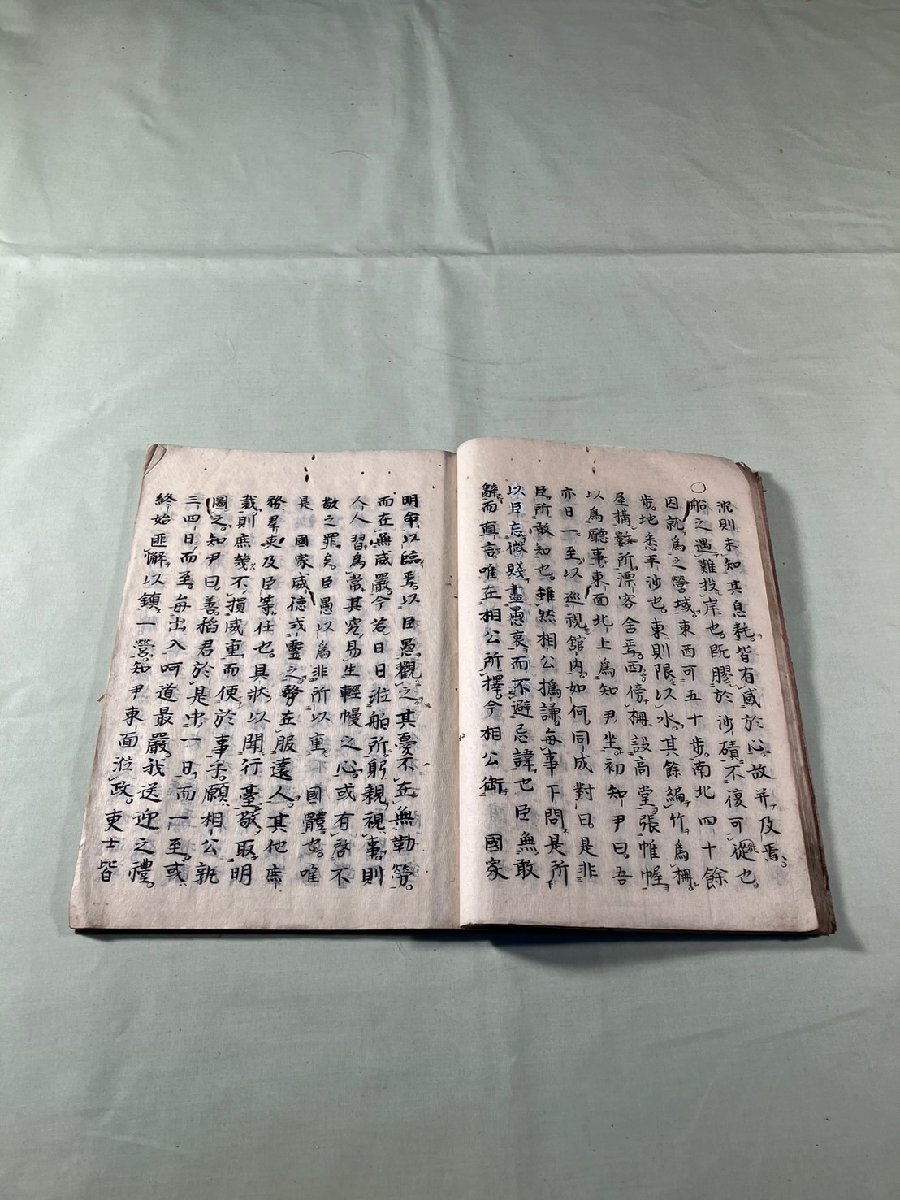 泥則未知其息耗皆有感於心故并及焉
○船之遇難投岸也既膠於沙磧不復可從也
因就爲之營域東西可五十步南北四十餘
步地悉平沙也東則限以水其餘編竹爲柵
屋構數所潤客舍焉西傍柵設高堂張帷幄
以爲聽事東面北上爲知尹坐初知尹曰吾
亦日一至以巡視舘内如何同成對曰是非
臣所敢知也雖然相公撝謙每事下問是所
以臣忘微賤盡愚衷而不避忌諱也臣無敢
辭而直言唯在相公所擇今相公銜 國家
明命以臨焉以臣愚觀之其憂不在無勤勞
而在無威嚴今若日日涖船所躬親視事則
令人習爲常其究易生輕慢之心或有啓不
敬之罪矣臣愚以爲非所以重 國體也唯
是 國家威德或靈之務在服遠人其他庶
務羣吏及臣等任也具狀以聞行臺敬取明
裁則庶幾不損威重而便於事乎願相公孰
圖之知尹曰善稻君於是出一日而一至或
三四日而至每出入呵道最嚴我送迎之禮
終始匪懈以鎮一營知尹東面涖政吏士皆